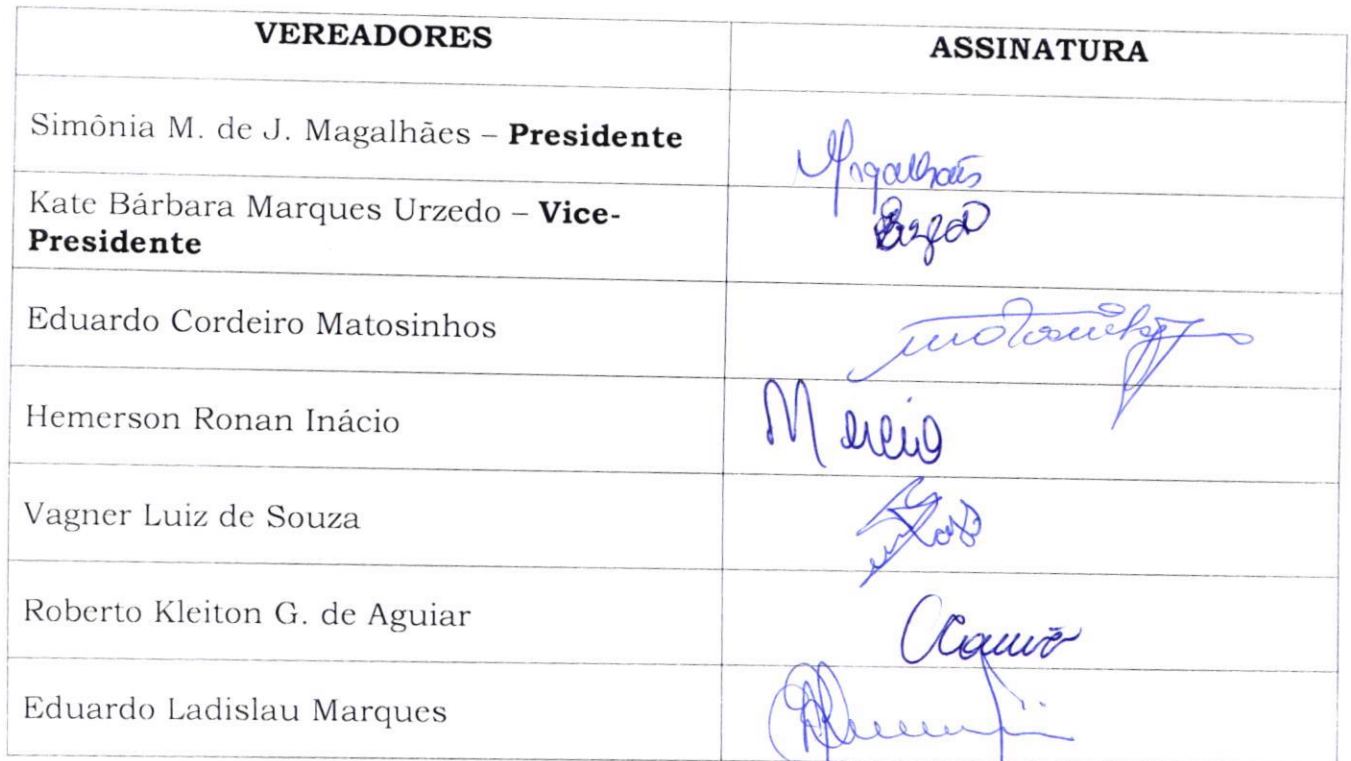 VEREADORES ASSINATURA
Simônia M. de J. Magalhães – Presidente
Magalhães
Kate Bárbara Marques Urzedo – Vice-
Presidente
Eduardo Cordeiro Matosinhos
Hemerson Ronan Inácio
Vagner Luiz de Souza
Roberto Kleiton G. de Aguiar
Eduardo Ladislau Marques